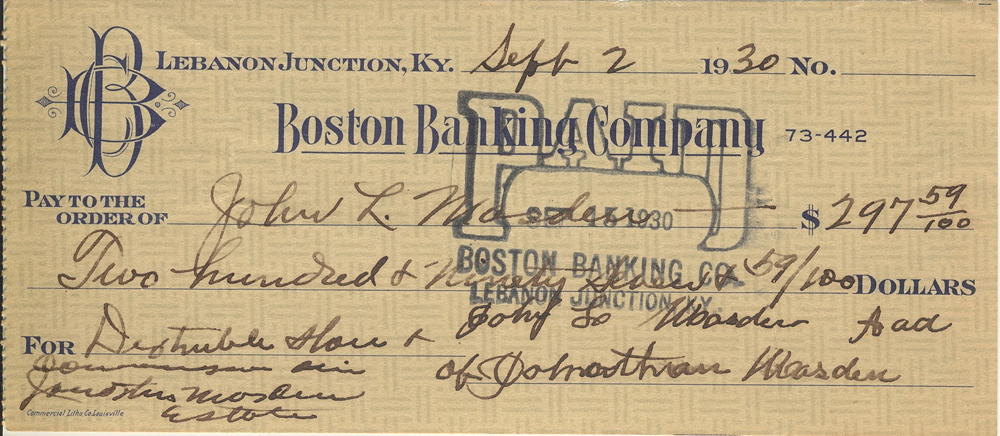 LEBANON JUNCTION, KY. Sept 2 1930 No.
BCB
Boston Banking Company 73-442
PAID
PAY TO THE
ORDER OF John L. Masden $ 297 59/100
SEP 15 1930
Two hundred & Ninety Seven & 59/100 DOLLARS
BOSTON BANKING CO.
LEBANON JUNCTION, KY.
John L. Masden Aad
FOR &
of Johnathan Masden
Masden
Estate
Commercial Litho. Co. Louisville